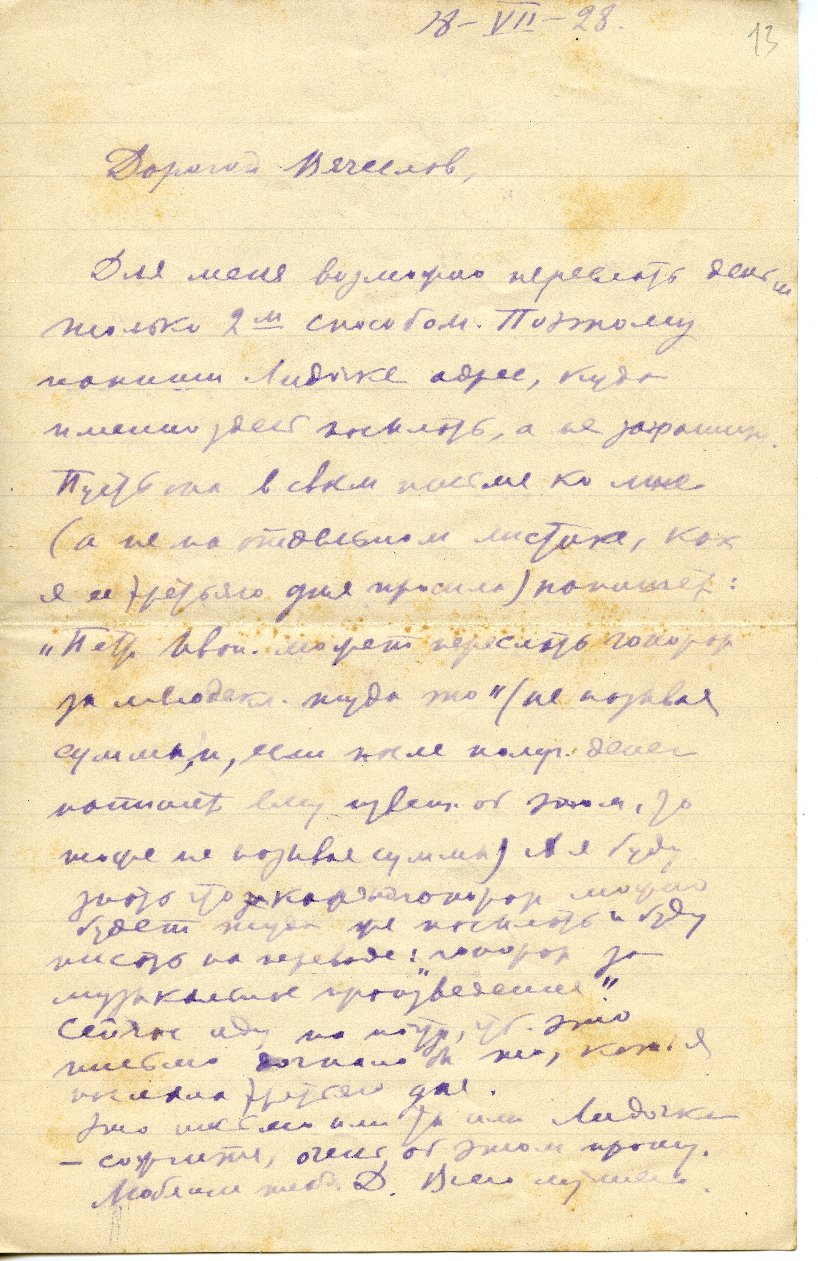 18-VII-28.
13
Дорогой Вячеслав,
Для меня возможно переслать деньги
только 2м способом. Поэтому
напиши Лидочке адрес, куда
именно здесь посылать, а не
Пусть она в своем письме ко мне
(а не на отдельном листике, как
я ее третьяго дня просила) напишет:
„Петр Иван. может переслать гонорар
за мелодекл. туда то" (не называя
суммы, и, если после получ. денег
напишет ему извещ. об этом, то
тоже не называя суммы) А я буду
знать что гонорар можно
будет туда же посылать и буду
писать на переводе: гонорар за
музыкальные произведения"
Сейчас иду на почту, чтб. это
письмо догнало бы то, кот. я
послала третьяго дня.
Это письмо или ты или Лидочка
– сожгите, очень об этом прошу.
Любящая тебя Д. Всего лучшего.